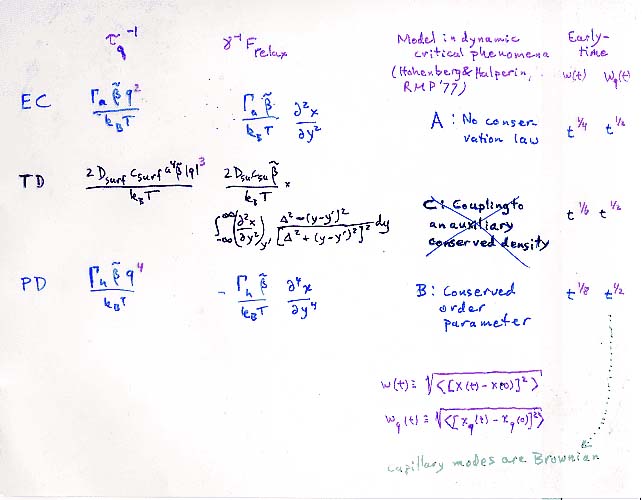 τ_q⁻¹ γ⁻¹ F_relax Model in dynamic critical phenomena (Hohenberg & Halperin, RMP '77) Early-time
w(t) w_q(t)
EC Γ_a β̃ q² / k_B T Γ_a β̃ / k_B T ∂²x / ∂y² A : No conser vation law t^1/4 t^1/2
TD 2 D_surf c_surf a⁴ β̃ |q|³ / k_B T 2 D_su c_su β̃ / k_B T ×
∫_-∞^∞ (∂²x / ∂y²)_y' Δ² - (y-y')² / [Δ² + (y-y')²]² dy C : Coupling to an auxiliary conserved density t^1/6 t^1/2
PD Γ_h β̃ q⁴ / k_B T - Γ_h β̃ / k_B T ∂⁴x / ∂y⁴ B : Conserved order parameter t^1/8 t^1/2
w(t) ≡ √⟨[x(t) - x(0)]²⟩
w_q(t) ≡ √⟨[x_q(t) - x_q(0)]²⟩
capillary modes are Brownian